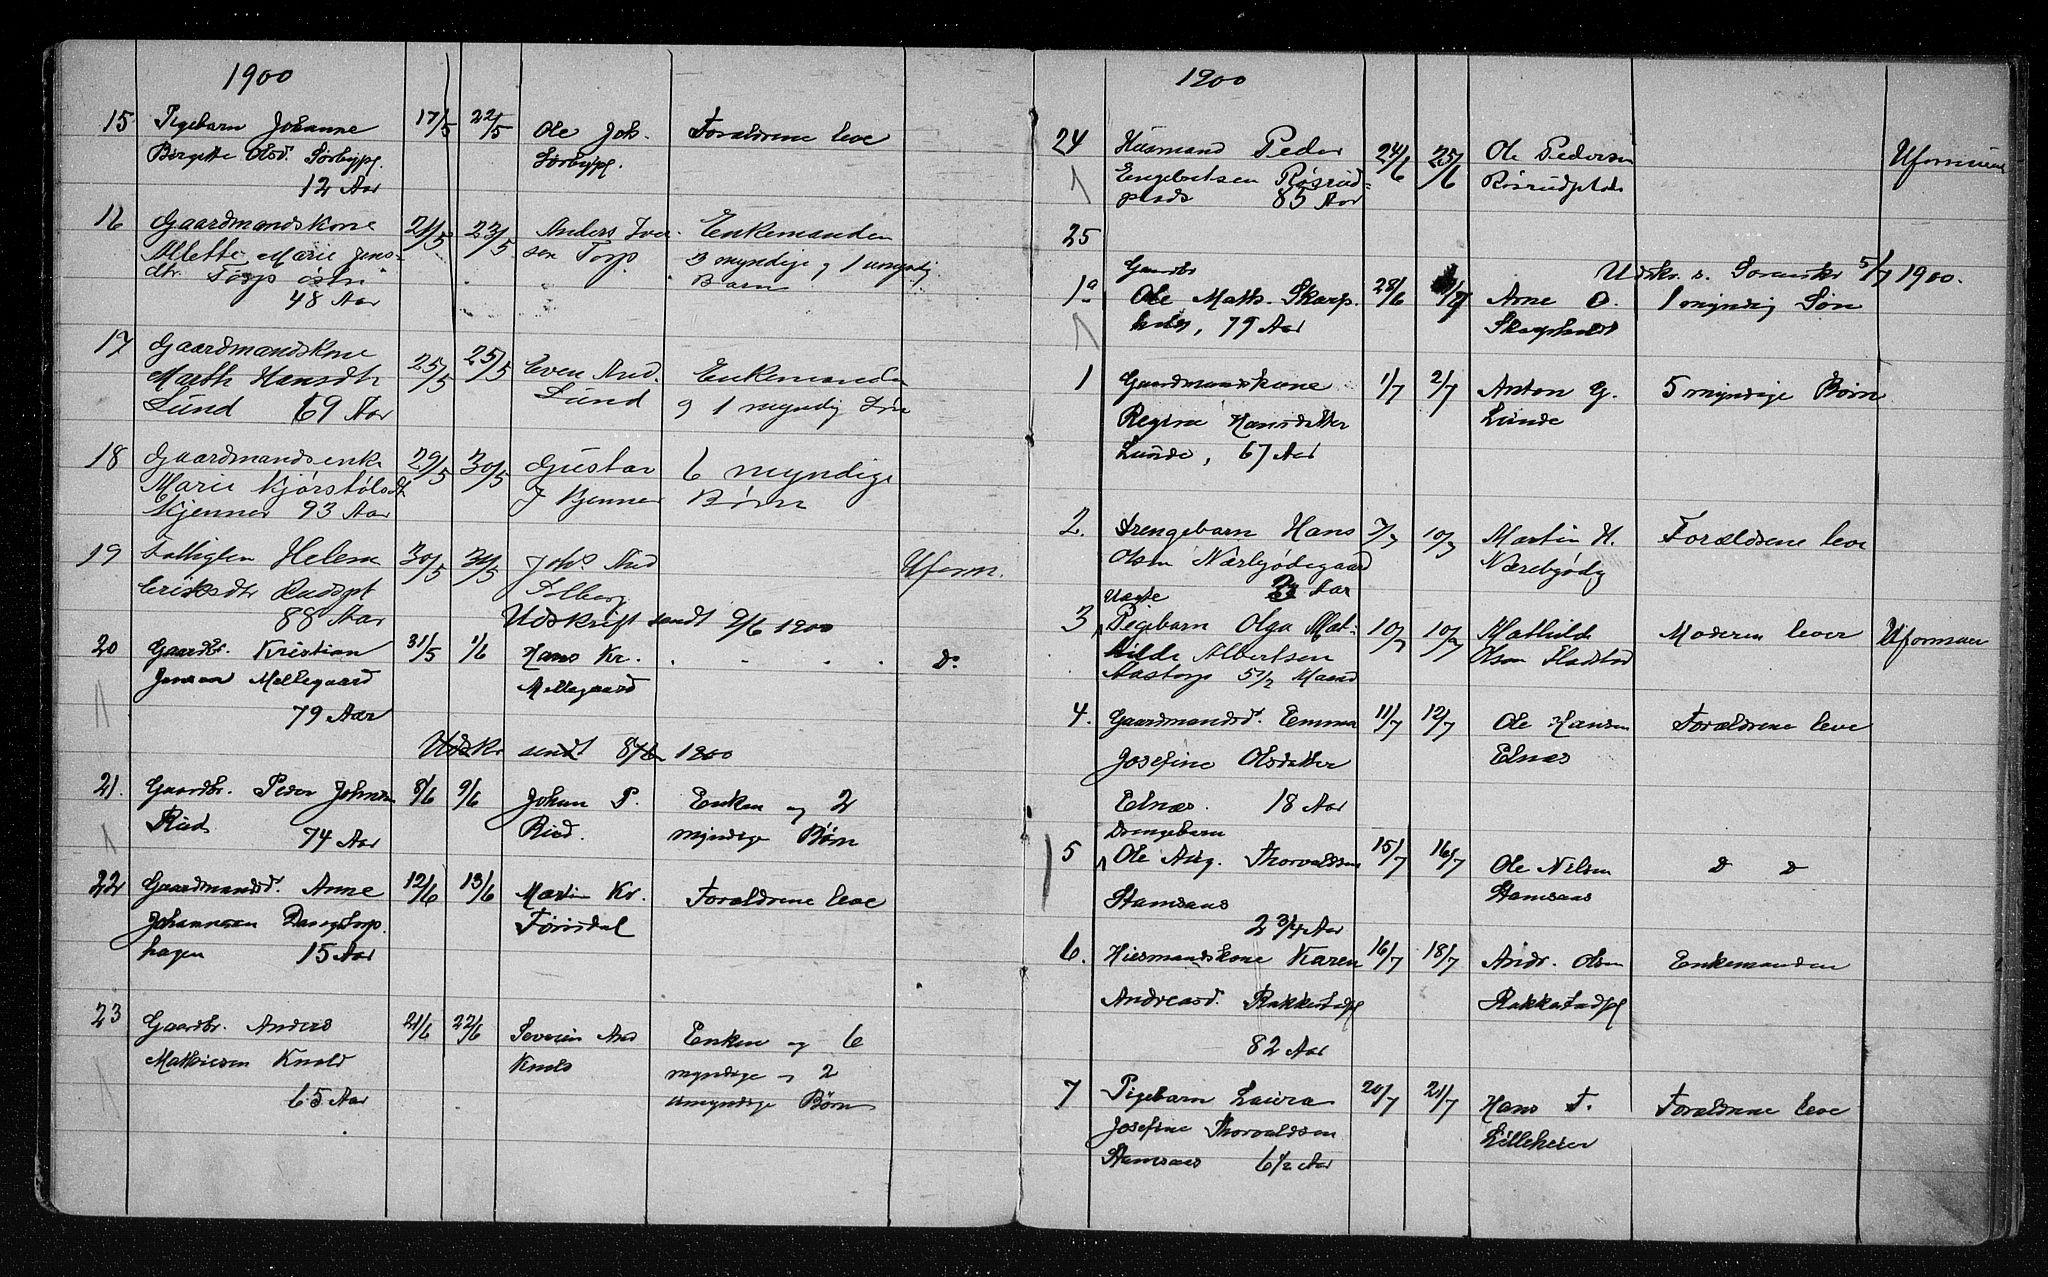 1900
15 Pigebarn Johanne 17/5 22/5 Ole Joh. Forældrene leve
Birgitte Olsd. Sørbypl. Sørbypl.
12 Aar
16 Gaardmandskone 21/5 23/5 Anders Iver- Enkemanden
Allette Marie Jens- sen Torp 3 myndige og 1 umyndig
dtr. Torp østre Barn
48 Aar
17 Gaardmandskone 25/5 25/5 Even And. Enkemanden
Marth Hansdtr Lund og 1 myndig Søn
Lund 69 Aar
18 Gaardmandsenke 29/5 30/5 Gustav 6 myndige
Marie Kjørstølsdtr J Kjenner Børn
Kjenner 93 Aar
19 Fattiglem Helene 30/5 Joh. And Uform.
Eriksdtr Solberg
88 Aar Udskrift sendt 9/6 1900
20 Gaardbr. Kristian 31/5 1/6 Hans Kr. . . . . Do
Jensen Mellegaard Mellegaard
79 Aar
Udskr sendt 1900
21. Gaardbr. Peder Johnsen 8/6 9/6 Johan P. Enken og 2
Rud 74 Aar Rud. myndige Børn
22 Gaardmandsd. Anne 12/6 13/6 Martin Kr. Forældrene leve
Johannesen Dangstorp- Førisdal
hagen 15 Aar
23 Gaardbr. Anders 21/6 22/6 Severin And Enken og 6
Mathiesen Knold Knold myndige og 2
65 Aar umyndige Børn
1900
24 Husmand Peder 24/6 25/6 Ole Pedersen Uformuende
Engebretsen Røsrud- Røsrudplads
plads 85 Aar
25
Gaardbr Udskr. s. Sorenskr 5/7 1900.
1a Ole Math. Skarp- 28/6 Arne O. 1 myndig Søn
holt, 79 Aar Skarpholt
1 Gaardmandskone 1/7 2/7 Anton G. 5 myndige Børn
Regine Hansdatter Lunde
Lunde, 67 Aar
2. Drengebarn Hans 7/7 10/7 Martin H. Forældrene leve
Olsen Nærbyødegaard Nærebyødg
Uægte Aar
3 Pigebarn Olga Mat- 10/7 10/7 Mathilde Moderen lever Uformuende
hilde Albertsen Olsen Fladstad
Aastorp 5 1/2 Maand
4. Gaardmandsd. Emma 11/7 12/7 Ole Hansen Forældrene leve
Josefine Olsdatter Elnæs
Elnæs. 18 Aar
Drengebarn
5 Ole Aug. Thorvaldsen 15/7 16/7 Ole Nilsen D D
Stamsaas Stamsaas
2 3/4 Aar
6. Husmandskone Karen 16/7 18/7 Andr. Olsen Enkemanden
Andreasd. Rakkestadpl Rakkestadpl
82 Aar
7 Pigebarn Laura 20/7 21/7 Hans T. Forældrene leve
Josefine Thorvaldsen Lilleheier
Stamsaas 6 1/2 Aar